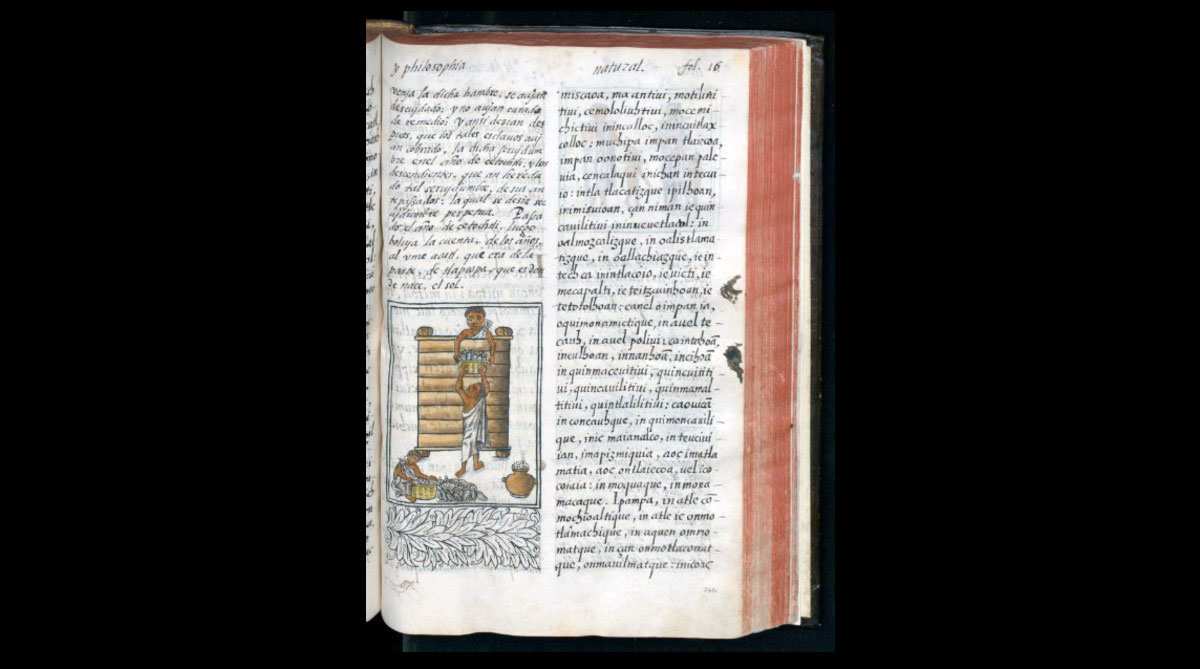 y philosophia natural. fol. 16
venja la dicha hambre; se avjan
descuydado: y no avjan curado
de remedio: y ansi dezian des
pues, que los tales esclavos avj
an cobrado, la dicha servjdum
bre en el año de cetochtli, y los
descendientes, que an hereda
do tal servjdumbre, de sus an
tepassados: la qual se dezia ser
vjdumbre perpetua. Passa
do el año de cetochtli, luego
bolvja la cuenta, de los años,
al ume acatl, que era de la
parte, de tlapcopa, que es don
de nace, el sol.
miscaoa, ma antivi, motilinj
tivi, cemololiuhtivi, mocemi
chictivi inincolloc, inincuitlax
colloc: muchipa impan tlaicoa,
impan oonotivi, mocepan pale
via, cencalaqui onichan intecu
io: intla tlacatizque ipilhoan,
inimisuioan, çan niman ie quin
cavilitivi ininvevetlacol: in
oalmozcalizque, in oalistlama
tizque, in oallachiazque, ie in
tech ca inintlacoio, ie victi, ie
mecapalti, ie teitzcuinhoan, ie
tetotolhoan: canel oimpan ia,
oquimonamictique, in avel te
cauh, in avel polivi: ca intahoã,
inculhoan, innanhoã, incihoã
in quinmacevitivi, quincuititi
vi, quincavilitivi, quinmamal
titivi, quintlalilitivi: ca ovicã
in concauhque, in quimoncavili
que, inic maianalco, in teucivi
ian, in apizmiquia, aoc imatla
matia, aoc ontlaiecoa, vel ico
coiaia: in moquaque, in mona
macaque. Ipampa, in atle cõ
mochioaltique, in atle ic onmo
tlamachique, in aquen ommo
matque, in çan onmotlacomat
que, onmavilmatque: inicoac